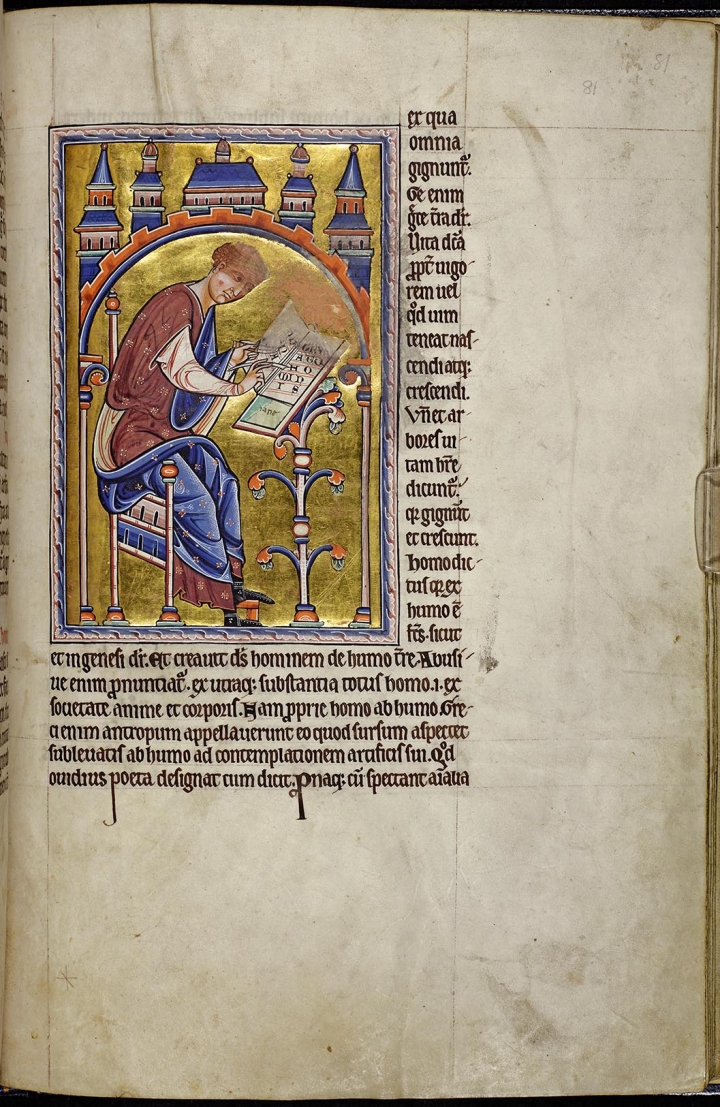 81
81
ex qua
omnia
gignunt᷑.
Ge enim
g̃te t̃ra dr̃.
Uita dc̃a
ꝓpt̃ uigo
rem uel
qd̓ uim
teneat nas-
cendi atq;
crescendi.
Vn̄ et ar-
bores ui-
tam hr̃e
dicunt᷑.
qꝛ gignunt᷑
et crescunt.
Homo dic-
tus qꝛ ex
humo ē
fc̃s. sicut
et in genesi dr̃. Et creauit ds̃ hominem de humo t̃re. Abusi-
ue enim ꝓnuntiat᷑. ex utraq; substantia totus homo .i. ex
societate anime et corporis. Nam ꝓprie homo ab humo. Gre-
ci enim antropum appellauerunt eo quod sursum aspectet
subleuatus ab humo ad contemplationem artificis sui. Qd̓
ouidius poeta designat cum dicit. Pnaq; cū spectant aīalia